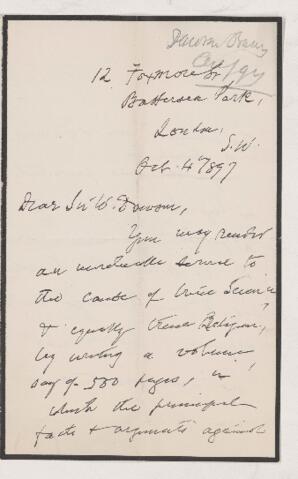 Dawson
12 Foxmore St
Battersea Park,
London,
S.W.
Oct. 4th 1897
Dear Sir W. Dawson,
You may render
an service to
the cause of true Science
& equally true Religion,
by writing a volume,
say of 500 pages, in
which the principal
facts & arguments against